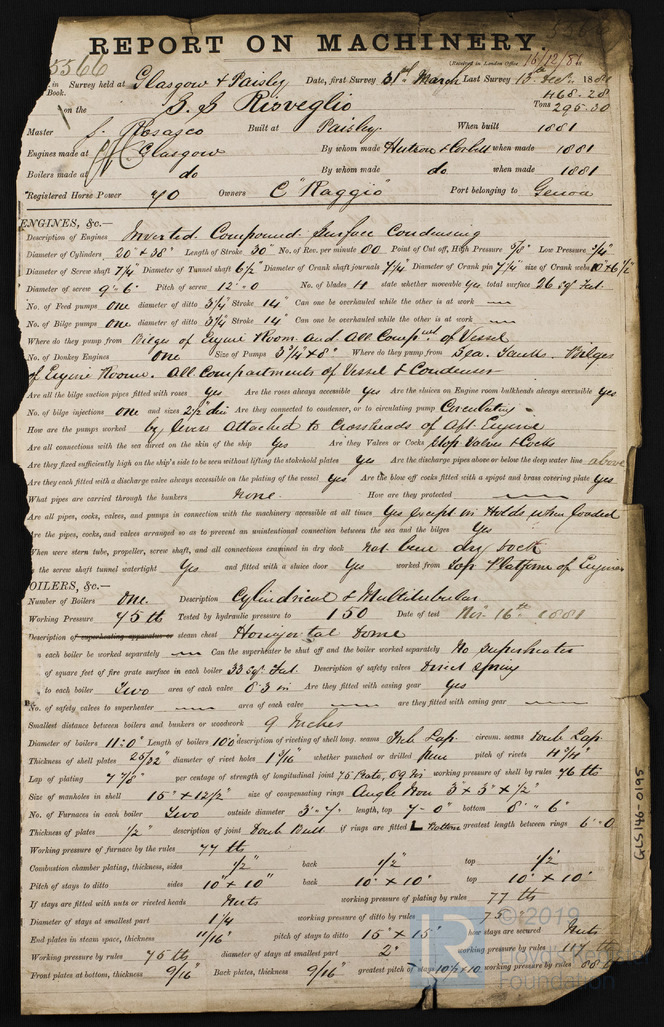 REPORT ON MACHINERY.
5566 (Received at London Office 16/12/81
in Survey held at Glasgow & Paisley Date, first Survey 31st March Last Survey 13th Decr. 1881
Book. 468.28
on the S.S. Risveglio Tons 295.30
Master J. Rosasco Built at Paisley When built 1881
Engines made at Glasgow By whom made Hutson & Corbett when made 1881
Boilers made at do By whom made do. when made 1881
Registered Horse Power 70 Owners C "Raggio" Port belonging to Genoa
ENGINES, &c.—
Description of Engines Inverted Compound Surface Condensing
Diameter of Cylinders 20" & 38" Length of Stroke 30" No. of Rev. per minute 80 Point of Cut off, High Pressure 5/8" Low Pressure 3/4"
Diameter of Screw shaft 7 1/4 Diameter of Tunnel shaft 6 1/2" Diameter of Crank shaft journals 7 1/4 Diameter of Crank pin 7 1/4 size of Crank webs 10" x 6 1/2"
Diameter of screw 9'-6" Pitch of screw 12'-0 No. of blades 4 state whether moveable yes total surface 26 sqr Feet.
No. of Feed pumps one diameter of ditto 3 1/4 Stroke 14" Can one be overhauled while the other is at work —
No. of Bilge pumps one diameter of ditto 3 1/4 Stroke 14" Can one be overhauled while the other is at work —
Where do they pump from Bilges of Engine Room and All Compnts of Vessel
No. of Donkey Engines one Size of Pumps 3 1/4 x 8" Where do they pump from Sea. Tanks. Bilges
of Engine Room. All Compartments of Vessel & Condenser
Are all the bilge suction pipes fitted with roses Yes Are the roses always accessible Yes Are the sluices on Engine room bulkheads always accessible yes
No. of bilge injections one and sizes 2 1/2" dia Are they connected to condenser, or to circulating pump Circulating
How are the pumps worked by levers attached to Crossheads of Aft Engine
Are all connections with the sea direct on the skin of the ship Yes Are they Valves or Cocks Stop Valves & Cocks
Are they fixed sufficiently high on the ship's side to be seen without lifting the stokehold plates Yes Are the discharge pipes above or below the deep water line above
Are they each fitted with a discharge valve always accessible on the plating of the vessel yes Are the blow off cocks fitted with a spigot and brass covering plate yes
What pipes are carried through the bunkers None. How are they protected —
Are all pipes, cocks, valves, and pumps in connection with the machinery accessible at all times Yes except in Holds when loaded
Are the pipes, cocks, and valves arranged so as to prevent an unintentional connection between the sea and the bilges Yes
When were stern tube, propeller, screw shaft, and all connections examined in dry dock Not been dry dock
Is the screw shaft tunnel watertight Yes and fitted with a sluice door Yes worked from Top Platform of Engines
OILERS, &c.—
Number of Boilers One. Description Cylindrical & Multitubular
Working Pressure 75 lb Tested by hydraulic pressure to 150 Date of test Nov. 16th 1881
Description of superheating apparatus or steam chest Horizontal Dome
each boiler be worked separately — Can the superheater be shut off and the boiler worked separately No Superheater
of square feet of fire grate surface in each boiler 33 sqr. Feet. Description of safety valves Direct spring
to each boiler Two area of each valve 8.3 in Are they fitted with easing gear Yes
No. of safety valves to superheater — area of each valve — are they fitted with easing gear —
Smallest distance between boilers and bunkers or woodwork 9 Inches
Diameter of boilers 11'-0" Length of boilers 10'0" description of riveting of shell long. seams Treb Lap circum. seams Doub Lap
Thickness of shell plates 25/32" diameter of rivet holes 1 3/16" whether punched or drilled pitch of rivets
Lap of plating 7 7/8" per centage of strength of longitudinal joint working pressure of shell by rules 76 lbs
Size of manholes in shell 15" x 12 1/2" size of compensating rings Angle Iron 3" x 3" x 1/2"
No. of Furnaces in each boiler Two outside diameter 3'-7" length, top 7'-0" bottom 8'-6"
Thickness of plates 1/2" description of joint Doub Butt if rings are fitted L Bottom greatest length between rings 6'-0
Working pressure of furnace by the rules 77 lbs
Combustion chamber plating, thickness, sides 1/2" back 1/2" top 1/2"
Pitch of stays to ditto sides 10" x 10" back 10" x 10" top 10" x 10"
If stays are fitted with nuts or riveted heads Nuts working pressure of plating by rules 77 lbs
Diameter of stays at smallest part 1 1/4 working pressure of ditto by rules 75
End plates in steam space, thickness 11/16" pitch of stays to ditto 15" x 15" how stays are secured Nuts
Working pressure by rules 75 lbs diameter of stays at smallest part 2" working pressure by rules 117 lbs
Front plates at bottom, thickness 9/16" Back plates, thickness 9/16" greatest pitch of stays 10 1/2 x 10 working pressure by rules 88 lb
GLS146-0195
LR
© 2019
Lloyd's Register
Foundation